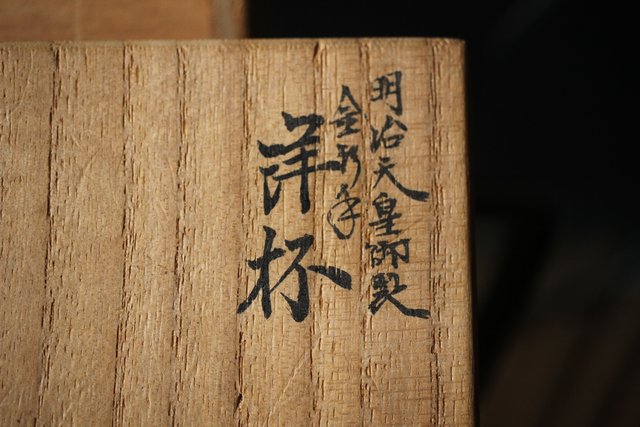 明治天皇御製
金彩手
洋杯